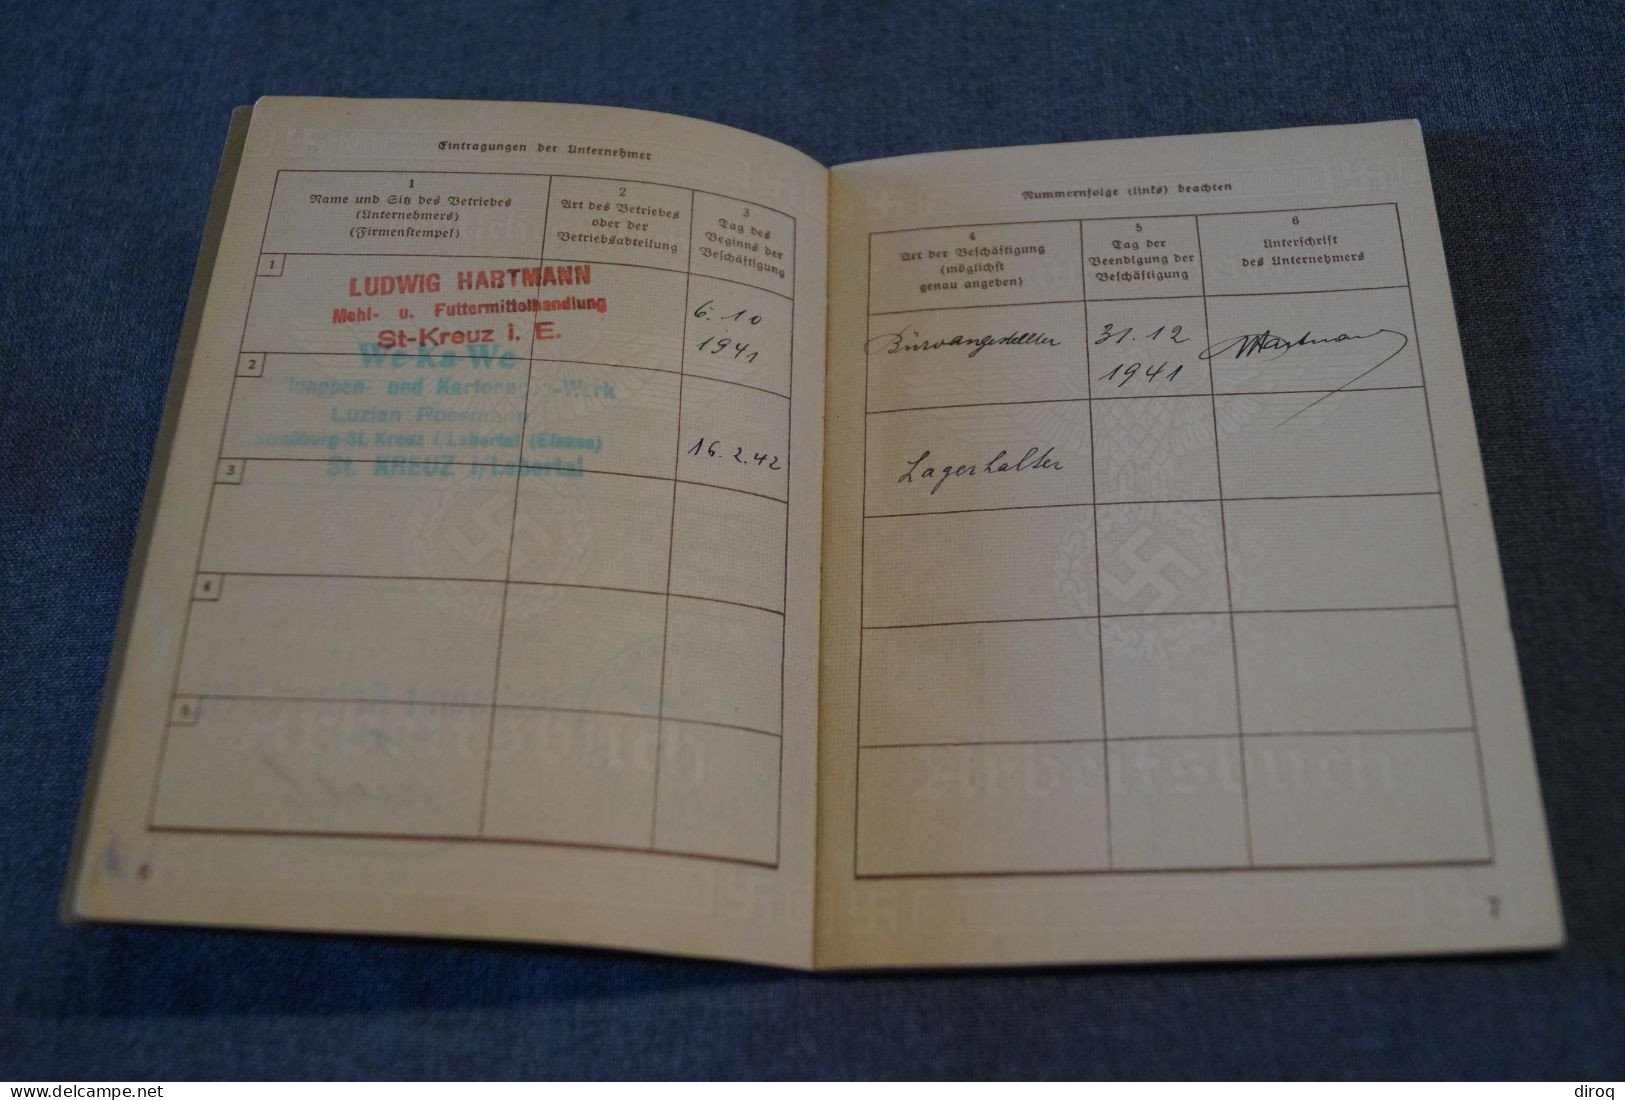 Eintragungen der Unternehmer
1
Name und Sitz des Betriebes
(Unternehmers)
(Firmenstempel)
2
Art des Betriebes
oder der
Betriebsabteilung
3
Tag des
Beginns der
Beschäftigung
1
LUDWIG HARTMANN
Mehl- u. Futtermittelhandlung
St-Kreuz i. E.
6. 10
1941
2
We Ka We
und Kartonagen-Werk
Luzian
Straßburg-St. Kreuz i/Lebertal (Elsass)
St. KREUZ i/Lebertal
16. 2. 42
3
4
5
Arbeitsbuch
6
Nummernfolge (links) beachten
4
Art der Beschäftigung
(möglichst
genau angeben)
5
Tag der
Beendigung der
Beschäftigung
6
Unterschrift
des Unternehmers
Büroangestellter
31. 12
1941
Hartmann
Lagerhalter
Arbeitsbuch
7
delcampe.net
diroq